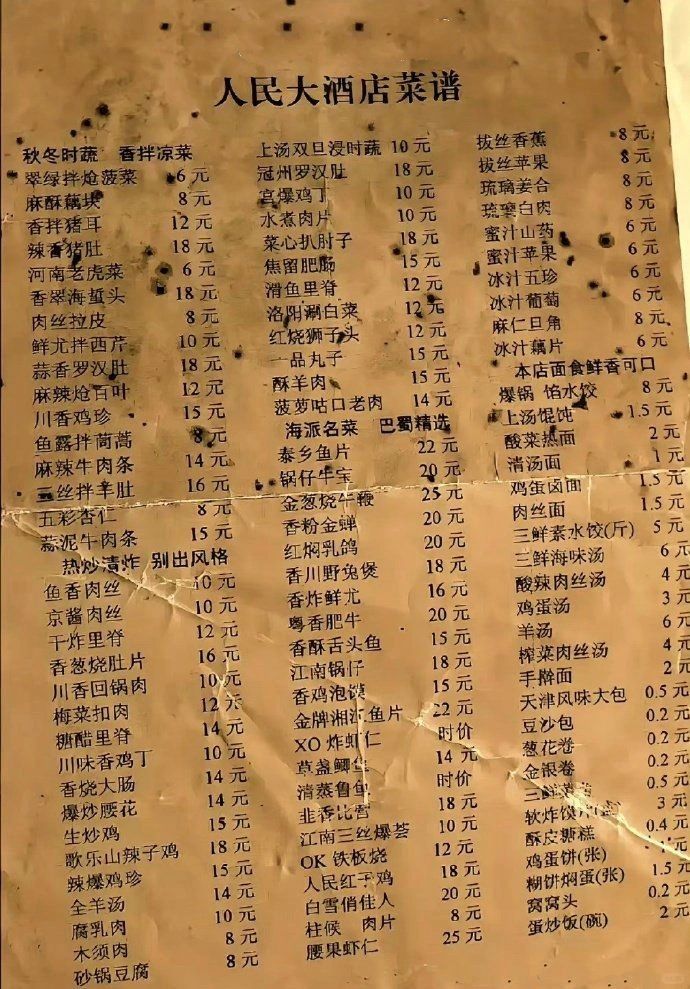 人民大酒店菜谱
秋冬时蔬 香拌凉菜
翠绿拌炝菠菜 6元
麻酥藕块 8元
香拌猪耳 12元
辣香猪肚 18元
河南老虎菜 6元
香翠海蜇头 18元
肉丝拉皮 8元
鲜尤拌西芹 10元
蒜香罗汉肚 18元
麻辣炝百叶 12元
川香鸡珍 15元
鱼露拌茼蒿 8元
麻辣牛肉条 14元
三丝拌羊肚 16元
五彩杏仁 8元
蒜泥牛肉条 15元
热炒清炸 别出风格
鱼香肉丝 10元
京酱肉丝 10元
干炸里脊 12元
香葱烧肚片 16元
川香回锅肉 10元
梅菜扣肉 12元
糖醋里脊 14元
川味香鸡丁 10元
香烧大肠 14元
爆炒腰花 14元
生炒鸡 15元
歌乐山辣子鸡 18元
辣爆鸡珍 15元
全羊汤 14元
腐乳肉 10元
木须肉 8元
砂锅豆腐 8元
上汤双旦浸时蔬 10元
冠州罗汉肚 18元
宫爆鸡丁 10元
水煮肉片 10元
菜心扒肘子 18元
焦留肥肠 15元
滑鱼里脊 12元
洛阴涮白菜 12元
红烧狮子头 12元
一品丸子 15元
酥羊肉 15元
菠萝咕口老肉 14元
海派名菜 巴蜀精选
泰乡鱼片 22元
锅仔牛宝 20元
金葱烧牛鞭 25元
香粉金蝉 20元
红焖乳鸽 20元
香川野兔煲 18元
香炸鲜尤 16元
粤香肥牛 20元
香酥舌头鱼 15元
江南锅仔 18元
香鸡泡馍 15元
金牌湘江鱼片 22元
XO炸虾仁 时价
草盏鲫鱼 14元
清蒸鲁鱼 时价
韭香比管 18元
江南三丝爆荟 10元
OK铁板烧 12元
人民红干鸡 18元
白雪俏佳人 20元
柱候 肉片 8元
腰果虾仁 25元
拔丝香蕉 8元
拔丝苹果 8元
琉璃姜合 8元
琉璃白肉 8元
蜜汁山药 8元
蜜汁苹果 8元
冰汁五珍 6元
冰汁葡萄 6元
麻仁旦角 8元
冰汁藕片 6元
本店面食鲜香可口
爆锅 馅水饺 8元
上汤馄饨 1.5元
酸菜热面 2元
清汤面 1元
鸡蛋卤面 1.5元
肉丝面 1.5元
三鲜素水饺(斤) 5元
三鲜海味汤 6元
酸辣肉丝汤 4元
鸡蛋汤 3元
羊汤 6元
榨菜肉丝汤 4元
手擀面 2元
天津风味大包 0.5元
豆沙包 0.2元
葱花卷 0.2元
金银卷 0.2元
三鲜 0.5元
软炸馍 3元
酥皮糖糕 0.4元
鸡蛋饼(张) 1元
糊饼焖蛋(张) 1.5元
窝窝头 0.2元
蛋炒饭(碗) 2元